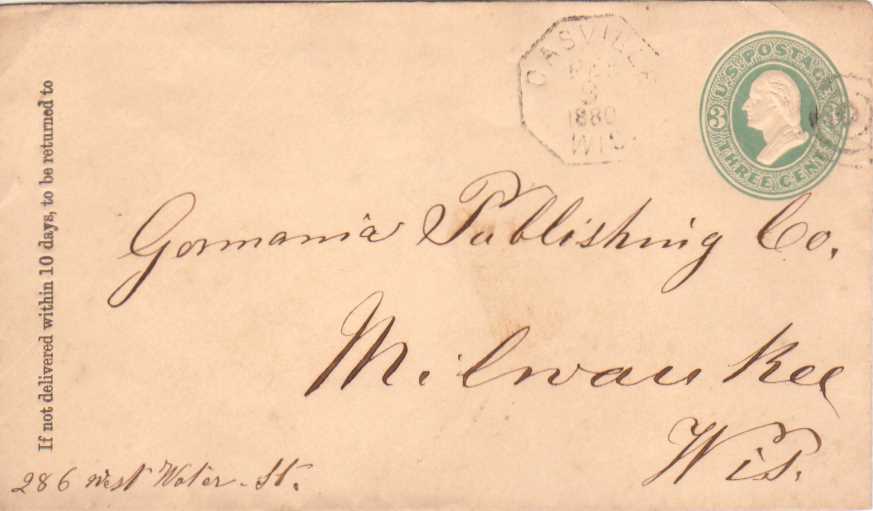 CASVILLE
3
1880
WIS.
U.S. POSTAGE
3
THREE CENTS
If not delivered within 10 days, to be returned to
Germania Publishing Co.
Milwaukee
Wis.
286 West Water St.